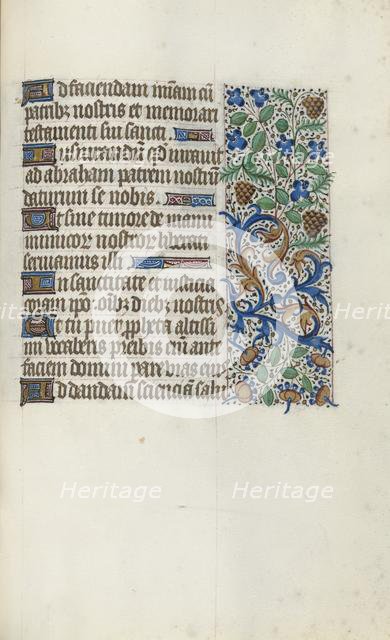 Ad faciendam miam cu
patribz nostris et memorari
testamenti sui sancti.
Iusiurandu qd iuravit
ad abraham patrem nostru
daturum se nobis.
Ut sine timore de manu
inimicor nostror liberati
serviamus illi
In sanctitate et iusticia
coram ipo omibz diebz nostris
Et tu puer ppheta altissi
mi vocaberis preibis eni ante
faciem domini parare vias eius
Ad dandam scienciam salu
Heritage Heritage
Heritage Heritage